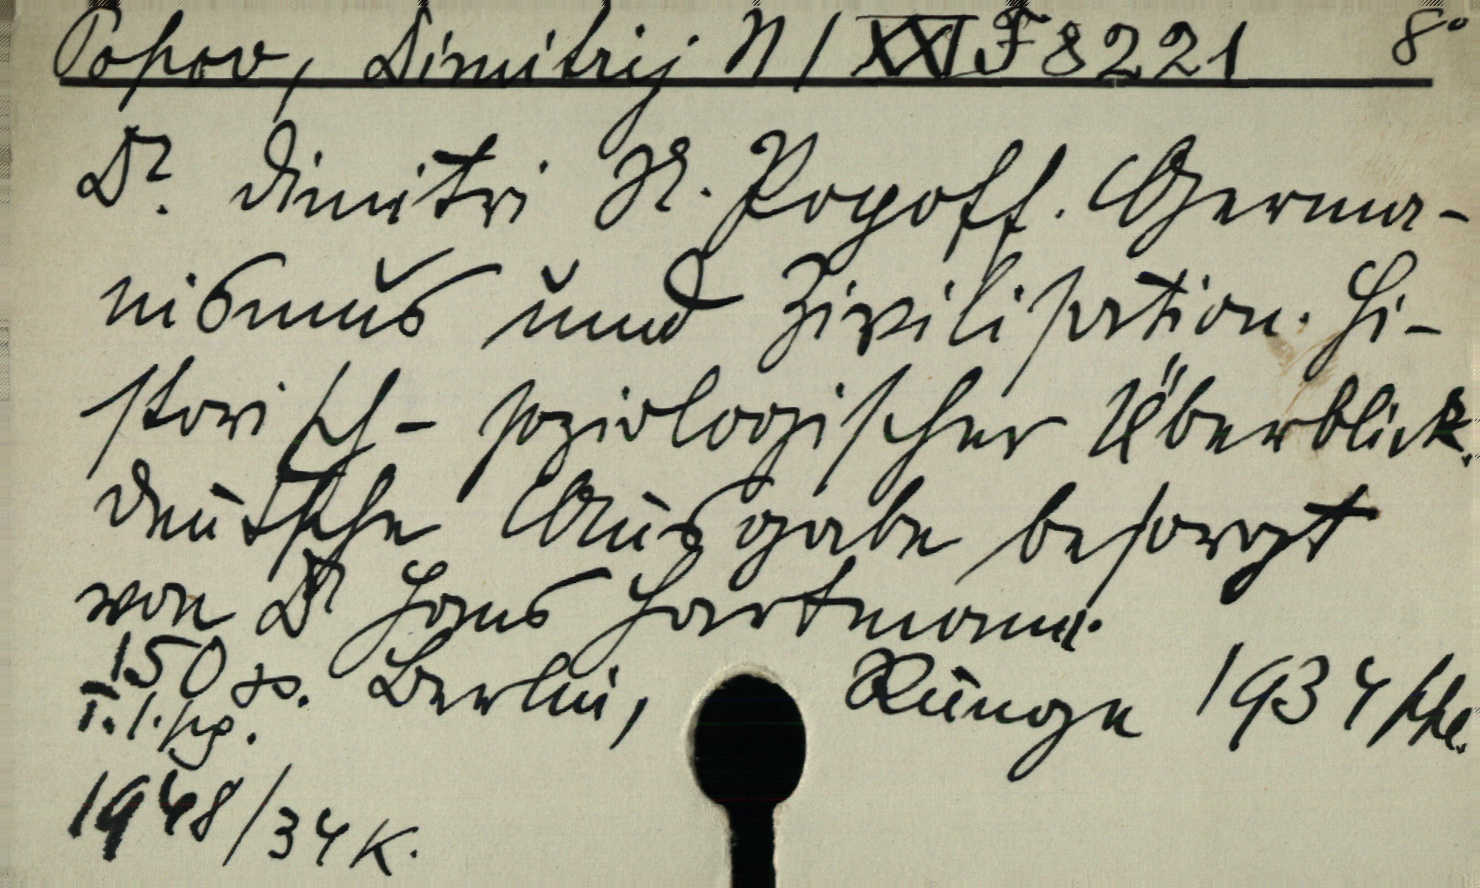 Popov, Dimitrij N / XXI F 8221 8°
Dr. Dimitri N. Popoff. Germa-
nismus und Zivilisation. Hi-
storisch-soziologischer Überblick.
Deutsche Ausgabe besorgt
von Dr Hans Hartmann.
150 ss. Berlin, Runge 1934
T. l. pg.
1948/34 K.